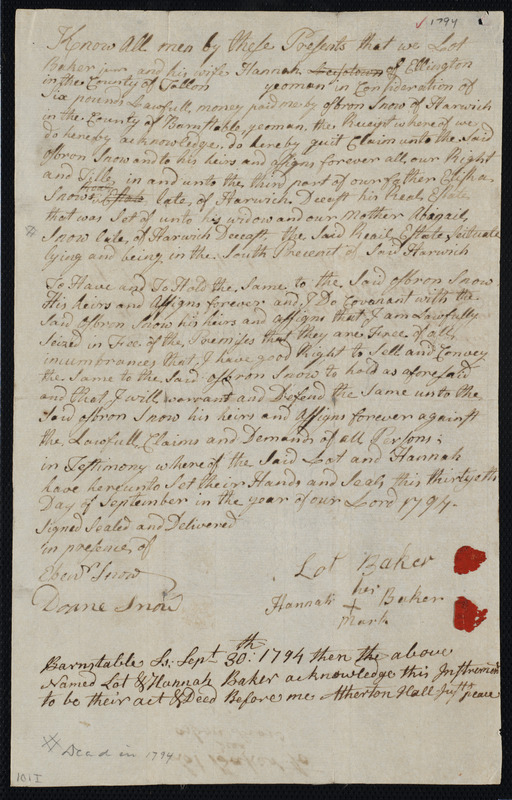 ✓ 1794
Know All men by these Presents that we Lot
Baker junr and his wife Hannah of Ellington
in the County of Tollon yeoman in Consideration of
Six pounds Lawfull money paid me by osbron Snow of Harwich
in the County of Barnstable, yeoman, the Receipt where of we
do hereby acknowledge, do hereby quit Claim unto the Said
osbron Snow and to his heirs and assigns forever all our Right
and Title, in and unto the third part of our father Elisha
Snow late, of Harwich Decest his Real Estate
that was Set of unto his widow and our Mother Abegail
※ Snow late, of Harwich Decest the Said Reail Estate, Setuate
lying and being in the South Precinct of Said Harwich
To Have and To Hold the Same to the Said osbron Snow
His heirs and assigns forever and I Do Covenant with the
Said osbron Snow his heirs and assigns that I am Lawfully
Seized in Fee of the Premises that they are Free of all
incumbrances that I have good Right to Sell and Convey
the Same to the Said osbron Snow to hold as aforesaid
and that I will warrant and Defend the Same unto the
Said osbron Snow his heirs and assigns forever against
the Lawfull Claims and Demands of all Persons;
in Testimony where of the Said Lot and Hannah
have hereunto Set their Hands and Seals this thirtyeth
Day of September in the year of our Lord 1794.
Signed Sealed and Delivered
in presence of
Ebenr Snow
Doane Snow
Lot Baker
her
Hannah + Baker
mark
Barnstable Ss, Sept 30th: 1794 then the above
Named Lot & Hannah Baker acknowledge this Instrement
to be their act & Deed Before me Atherton Hall Just peace
※ Deed in 1794
101 I